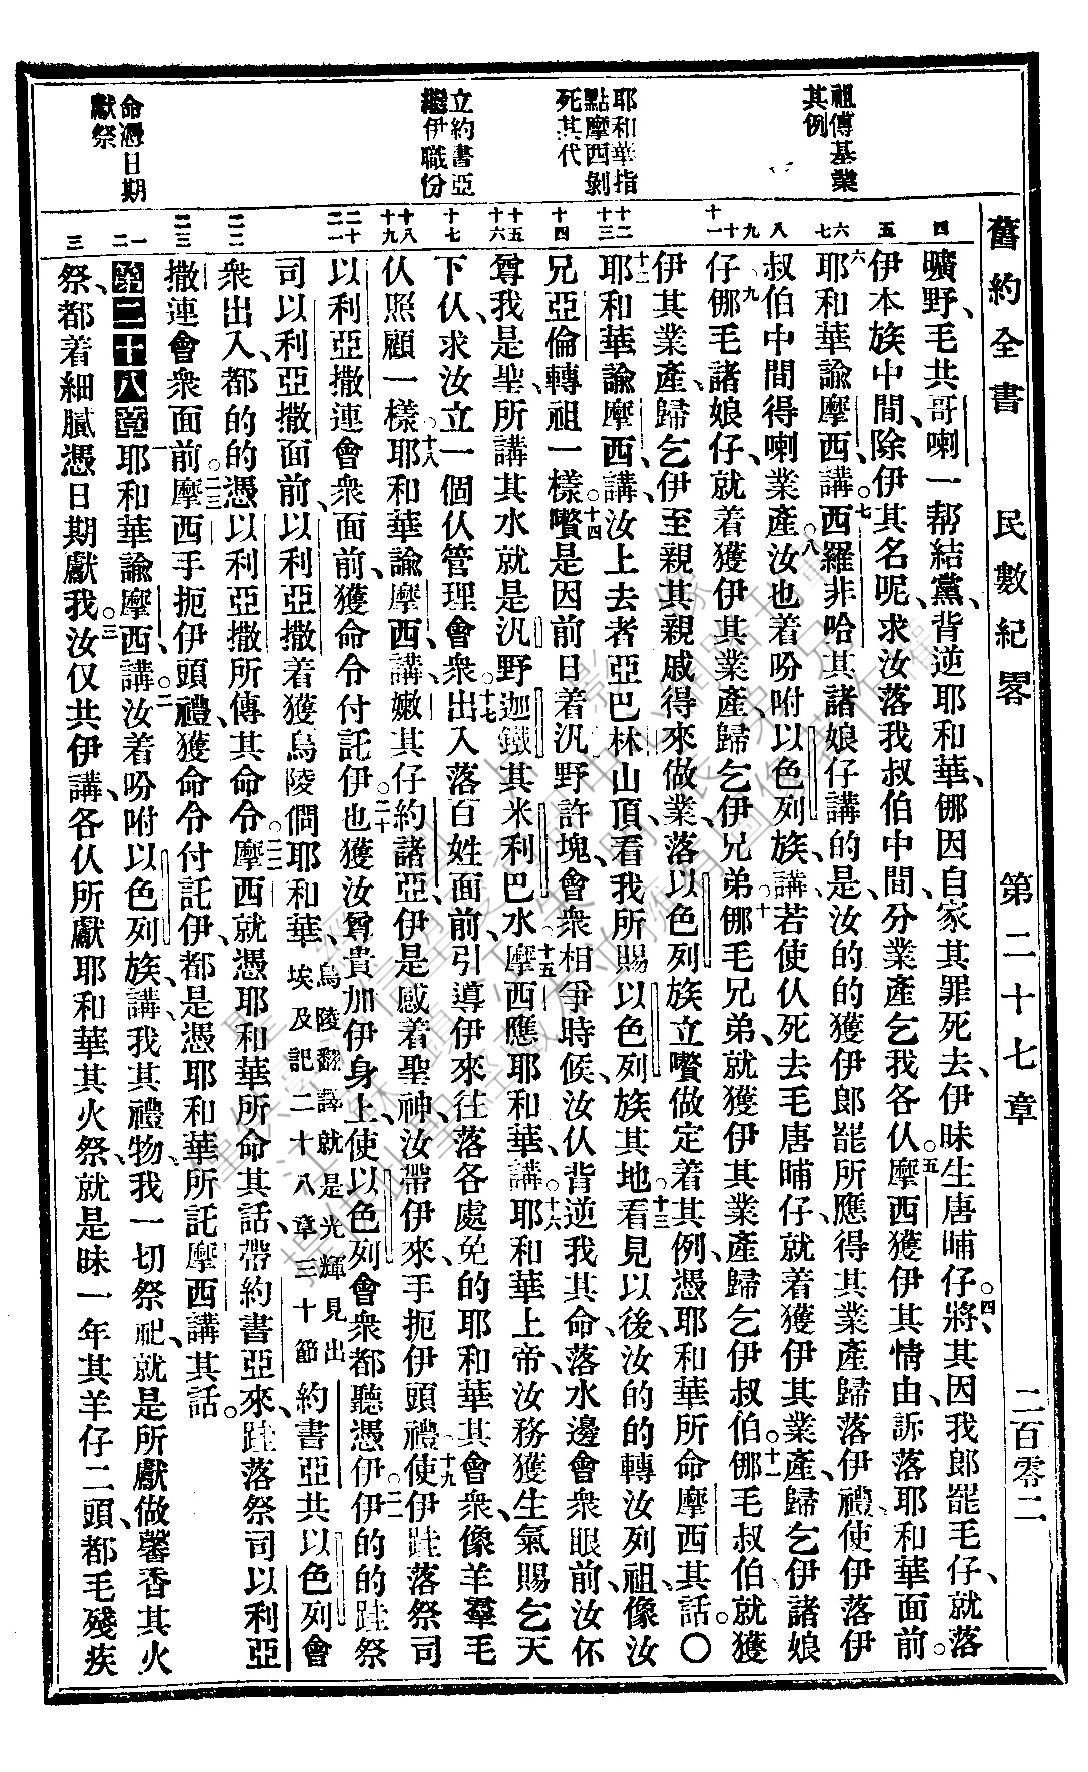 舊約全書 民數紀畧 第二十七章 二百零二
祖傳基業
其例
耶和華指
點摩西剝
死其代
立約書亞
繼伊職份
命憑日期
獻祭
四 五 六 七 八 九 十 十一 十二 十三 十四 十五 十六 十七 十八 十九 二十 二一 二二 二三 一 二 三
曠野、毛共哥喇一幇結黨、背逆耶和華、㑚因自家其罪死去、伊昧生唐晡仔。四將其因我郎罷毛仔、就落
伊本族中間、除伊其名呢、求汝落我叔伯中間、分業產乞我各仈。五摩西獲伊其情由、訴落耶和華面前。
六耶和華諭摩西講。七西羅非哈其諸娘仔講的是、汝的的獲伊郎罷所應得其業產歸落伊、禮使伊落伊
叔伯中間得喇業產。八汝也着吩咐以色列族、講、若使仈死去毛唐晡仔、就着獲伊其業產、歸乞伊諸娘
仔。九㑚毛諸娘仔、就着獲伊其業產、歸乞伊兄弟。十㑚毛兄弟、就獲伊其業產歸乞伊叔伯。十一㑚毛叔伯、就獲
伊其業產、歸乞伊至親其親戚得來做業、落以色列族立嚽做定着其例、憑耶和華所命摩西其話。〇
十二耶和華諭摩西講、汝上去者亞巴林山頂、看我所賜以色列族其地。十三看見以後、汝的的轉汝列祖、像汝
兄亞倫轉祖一樣。十四嚽是因前日着汎野許塊、會衆相爭時候、汝仈背逆我其命、落水邊會衆眼前、汝伓
尊我是聖、所講其水就是汎野迦鐵其米利巴水。十五摩西應耶和華講、十六耶和華上帝、汝務獲生氣賜乞天
下仈、求汝立一個仈管理會衆、十七出入落百姓面前、引導伊來往落各處、免的耶和華其會衆、像羊羣毛
仈照顧一樣。十八耶和華諭摩西講、嫩其仔約諸亞、伊是感着聖神、汝帶伊來、手扼伊頭禮、十九使伊跬落祭司
以利亞撒連會衆面前、獲命令付託伊。二十也獲汝尊貴加伊身上、使以色列會衆都聽憑伊。二一伊的的跬祭
司以利亞撒面前、以利亞撒着獲烏陵㑚耶和華、烏陵翻譯就是光輝見出埃及記二十八章三十節約書亞共以色列會
衆出入、都的的憑以利亞撒所傳其命令。二二摩西就憑耶和華所命其話、帶約書亞來、跬落祭司以利亞
撒連會衆面前。二三摩西手扼伊頭禮、獲命令付託伊、都是憑耶和華所託摩西講其話。
第二十八章 一耶和華諭摩西講。二汝着吩咐以色列族、講、我其禮物、我一切祭祀、就是所獻做馨香其火
祭、都着細膩憑日期獻我。三汝仅共伊講、各仈所獻耶和華其火祭、就是昧一年其羊仔二頭、都毛殘疾